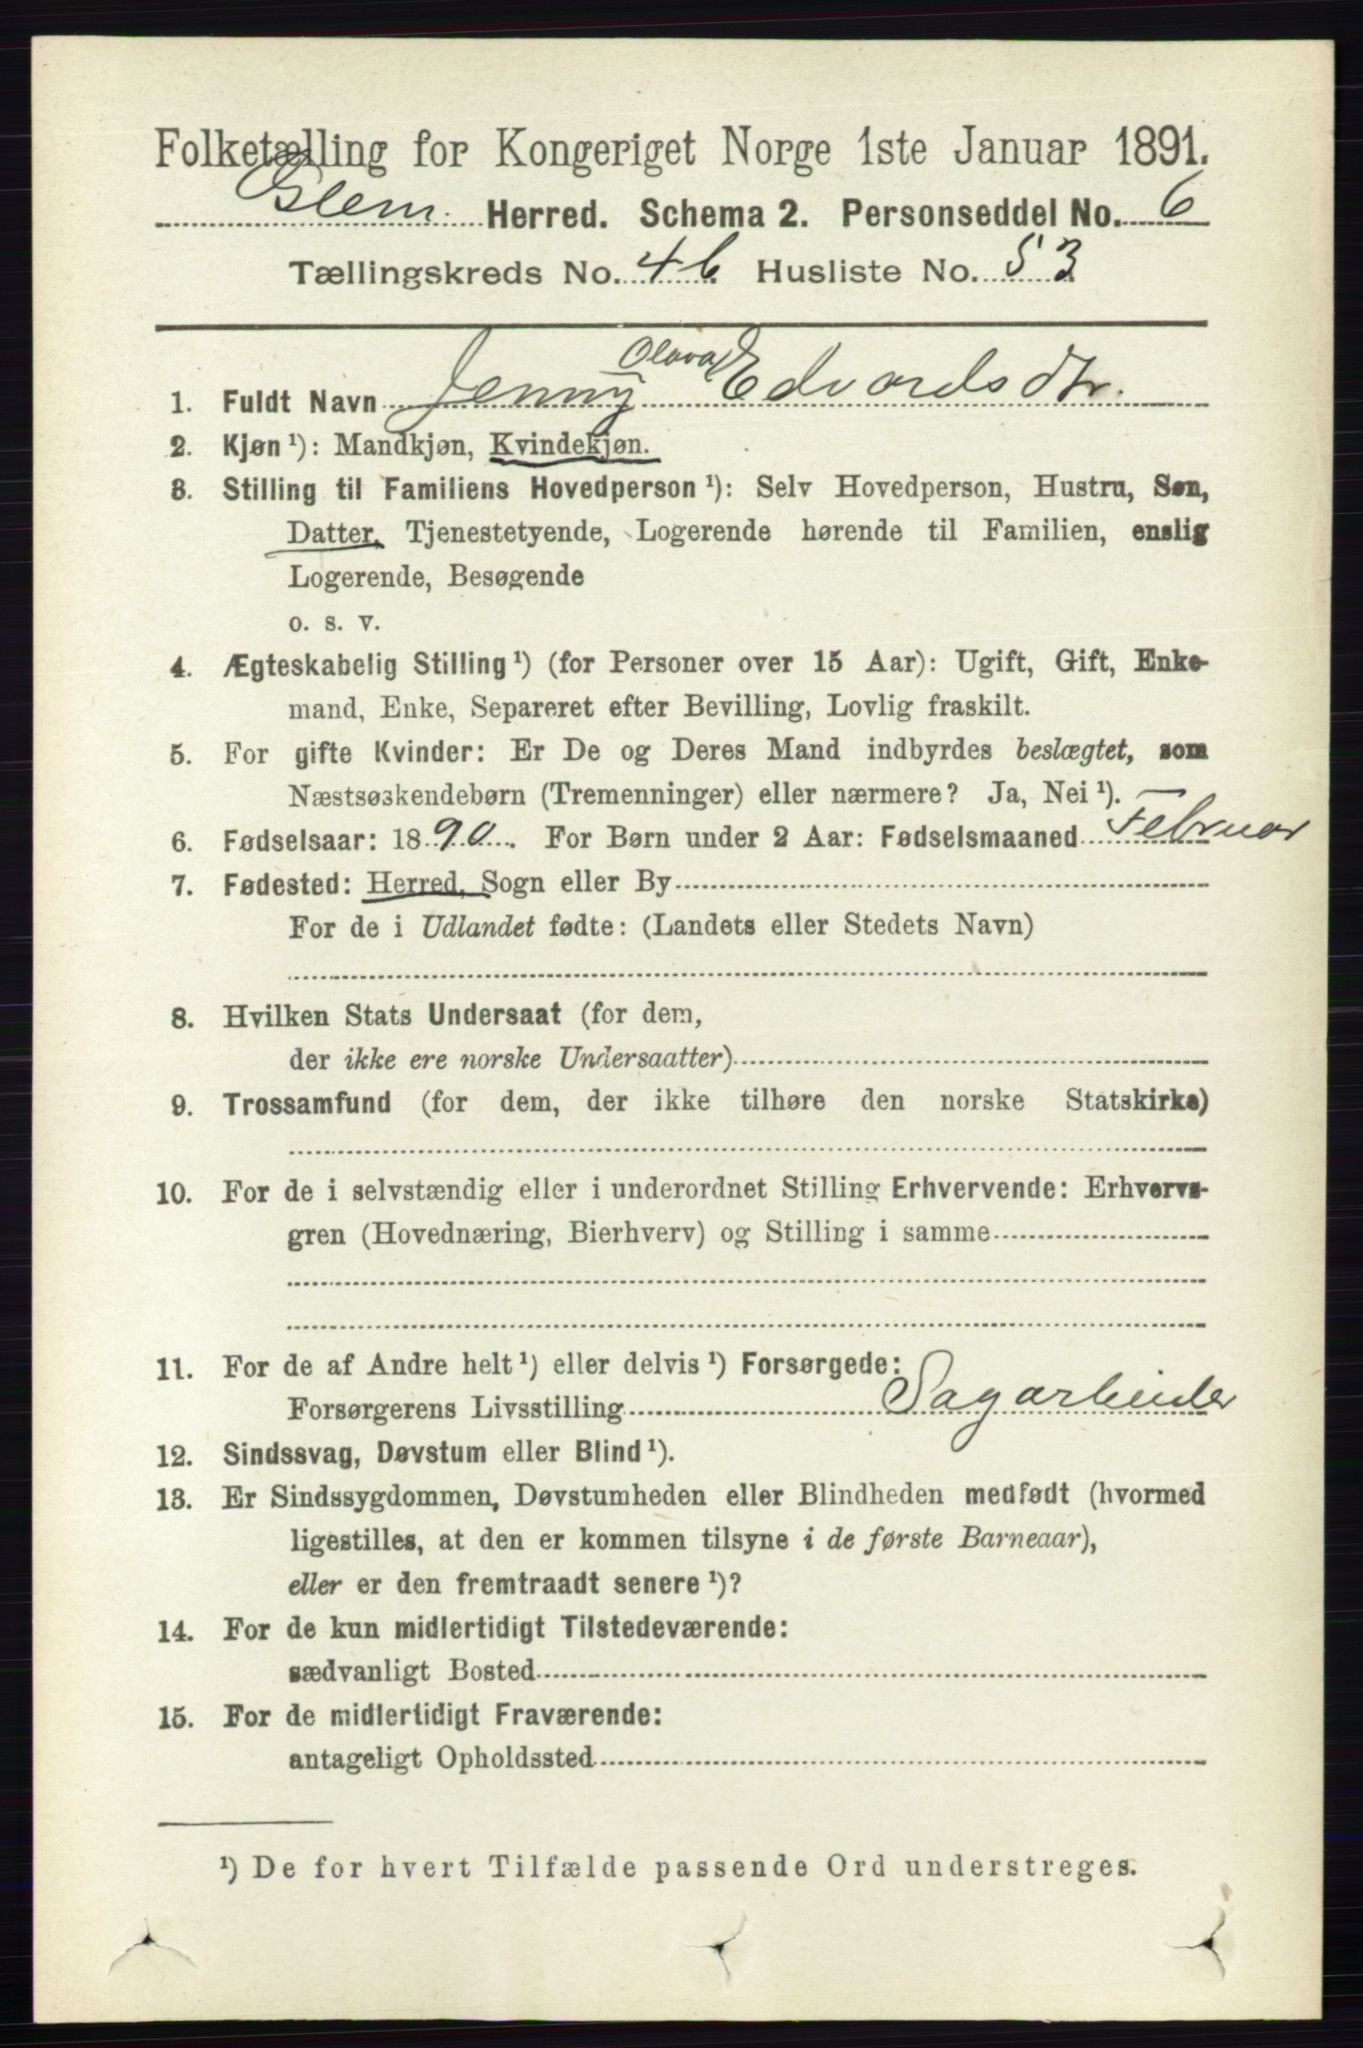 Folketælling for Kongeriget Norge 1ste Januar 1891.
Glem Herred. Schema 2. Personseddel No. 6
Tællingskreds No. 4 b Husliste No. 53
Olava
1. Fuldt Navn Jenny Edvardsdtr.
2. Kjøn ¹): Mandkjøn, Kvindekjøn.
3. Stilling til Familiens Hovedperson ¹): Selv Hovedperson, Hustru, Søn,
Datter, Tjenestetyende, Logerende hørende til Familien, enslig
Logerende, Besøgende
o. s. v.
4. Ægteskabelig Stilling ¹) (for Personer over 15 Aar): Ugift, Gift, Enke-
mand, Enke, Separeret efter Bevilling, Lovlig fraskilt.
5. For gifte Kvinder: Er De og Deres Mand indbyrdes beslægtet, som
Næstsøskendebørn (Tremenninger) eller nærmere? Ja, Nei ¹).
6. Fødselsaar: 1890. For Børn under 2 Aar: Fødselsmaaned Februar
7. Fødested: Herred, Sogn eller By
For de i Udlandet fødte: (Landets eller Stedets Navn)
8. Hvilken Stats Undersaat (for dem,
der ikke ere norske Undersaatter)
9. Trossamfund (for dem, der ikke tilhøre den norske Statskirke)
10. For de i selvstændig eller i underordnet Stilling Erhvervende: Erhvervs-
gren (Hovednæring, Bierhverv) og Stilling i samme
11. For de af Andre helt ¹) eller delvis ¹) Forsørgede:
Forsørgerens Livsstilling Sagarbeider
12. Sindssvag, Døvstum eller Blind ¹).
13. Er Sindssygdommen, Døvstumheden eller Blindheden medfødt (hvormed
ligestilles, at den er kommen tilsyne i de første Barneaar),
eller er den fremtraadt senere ¹)?
14. For de kun midlertidigt Tilstedeværende:
sædvanligt Bosted
15. For de midlertidigt Fraværende:
antageligt Opholdssted
¹) De for hvert Tilfælde passende Ord understreges.